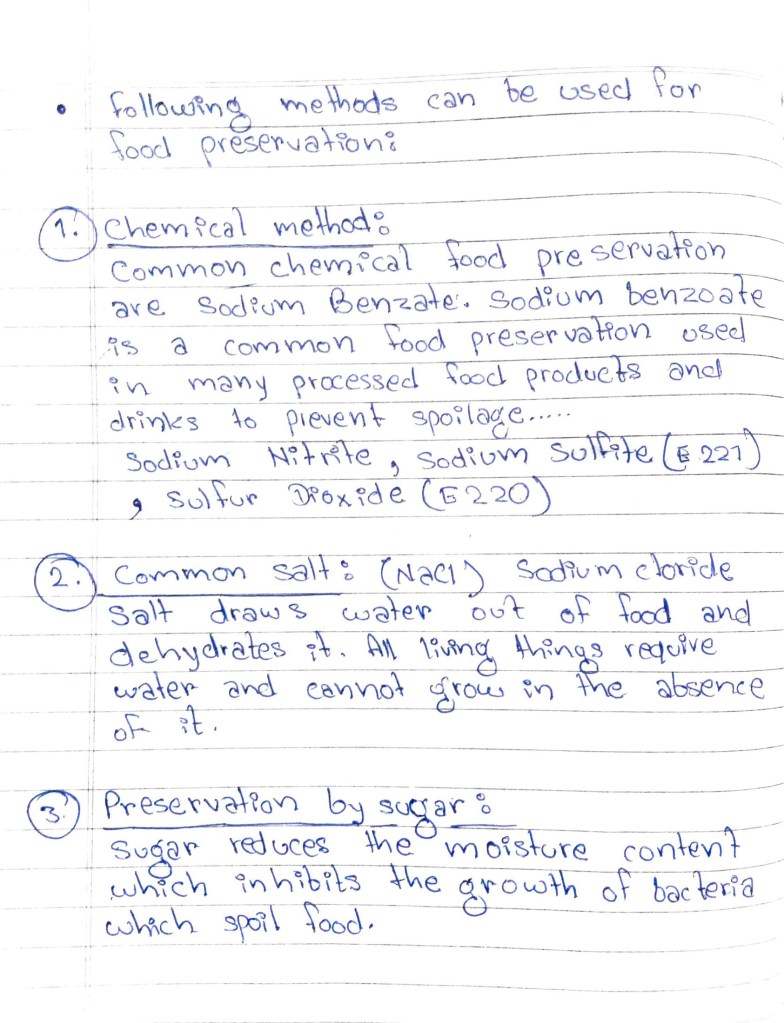 • following methods can be used for
food preservation:
1. Chemical method:
Common chemical food preservation
are Sodium Benzate. Sodium benzoate
is a common food preservation used
in many processed food products and
drinks to prevent spoilage.....
Sodium Nitrite, Sodium Sulfite (E 221)
, Sulfur Dioxide (E220)
2. Common salt: (NaCl) Sodium cloride
Salt draws water out of food and
dehydrates it. All living things require
water and cannot grow in the absence
of it.
3. Preservation by sugar:
Sugar reduces the moisture content
which inhibits the growth of bacteria
which spoil food.